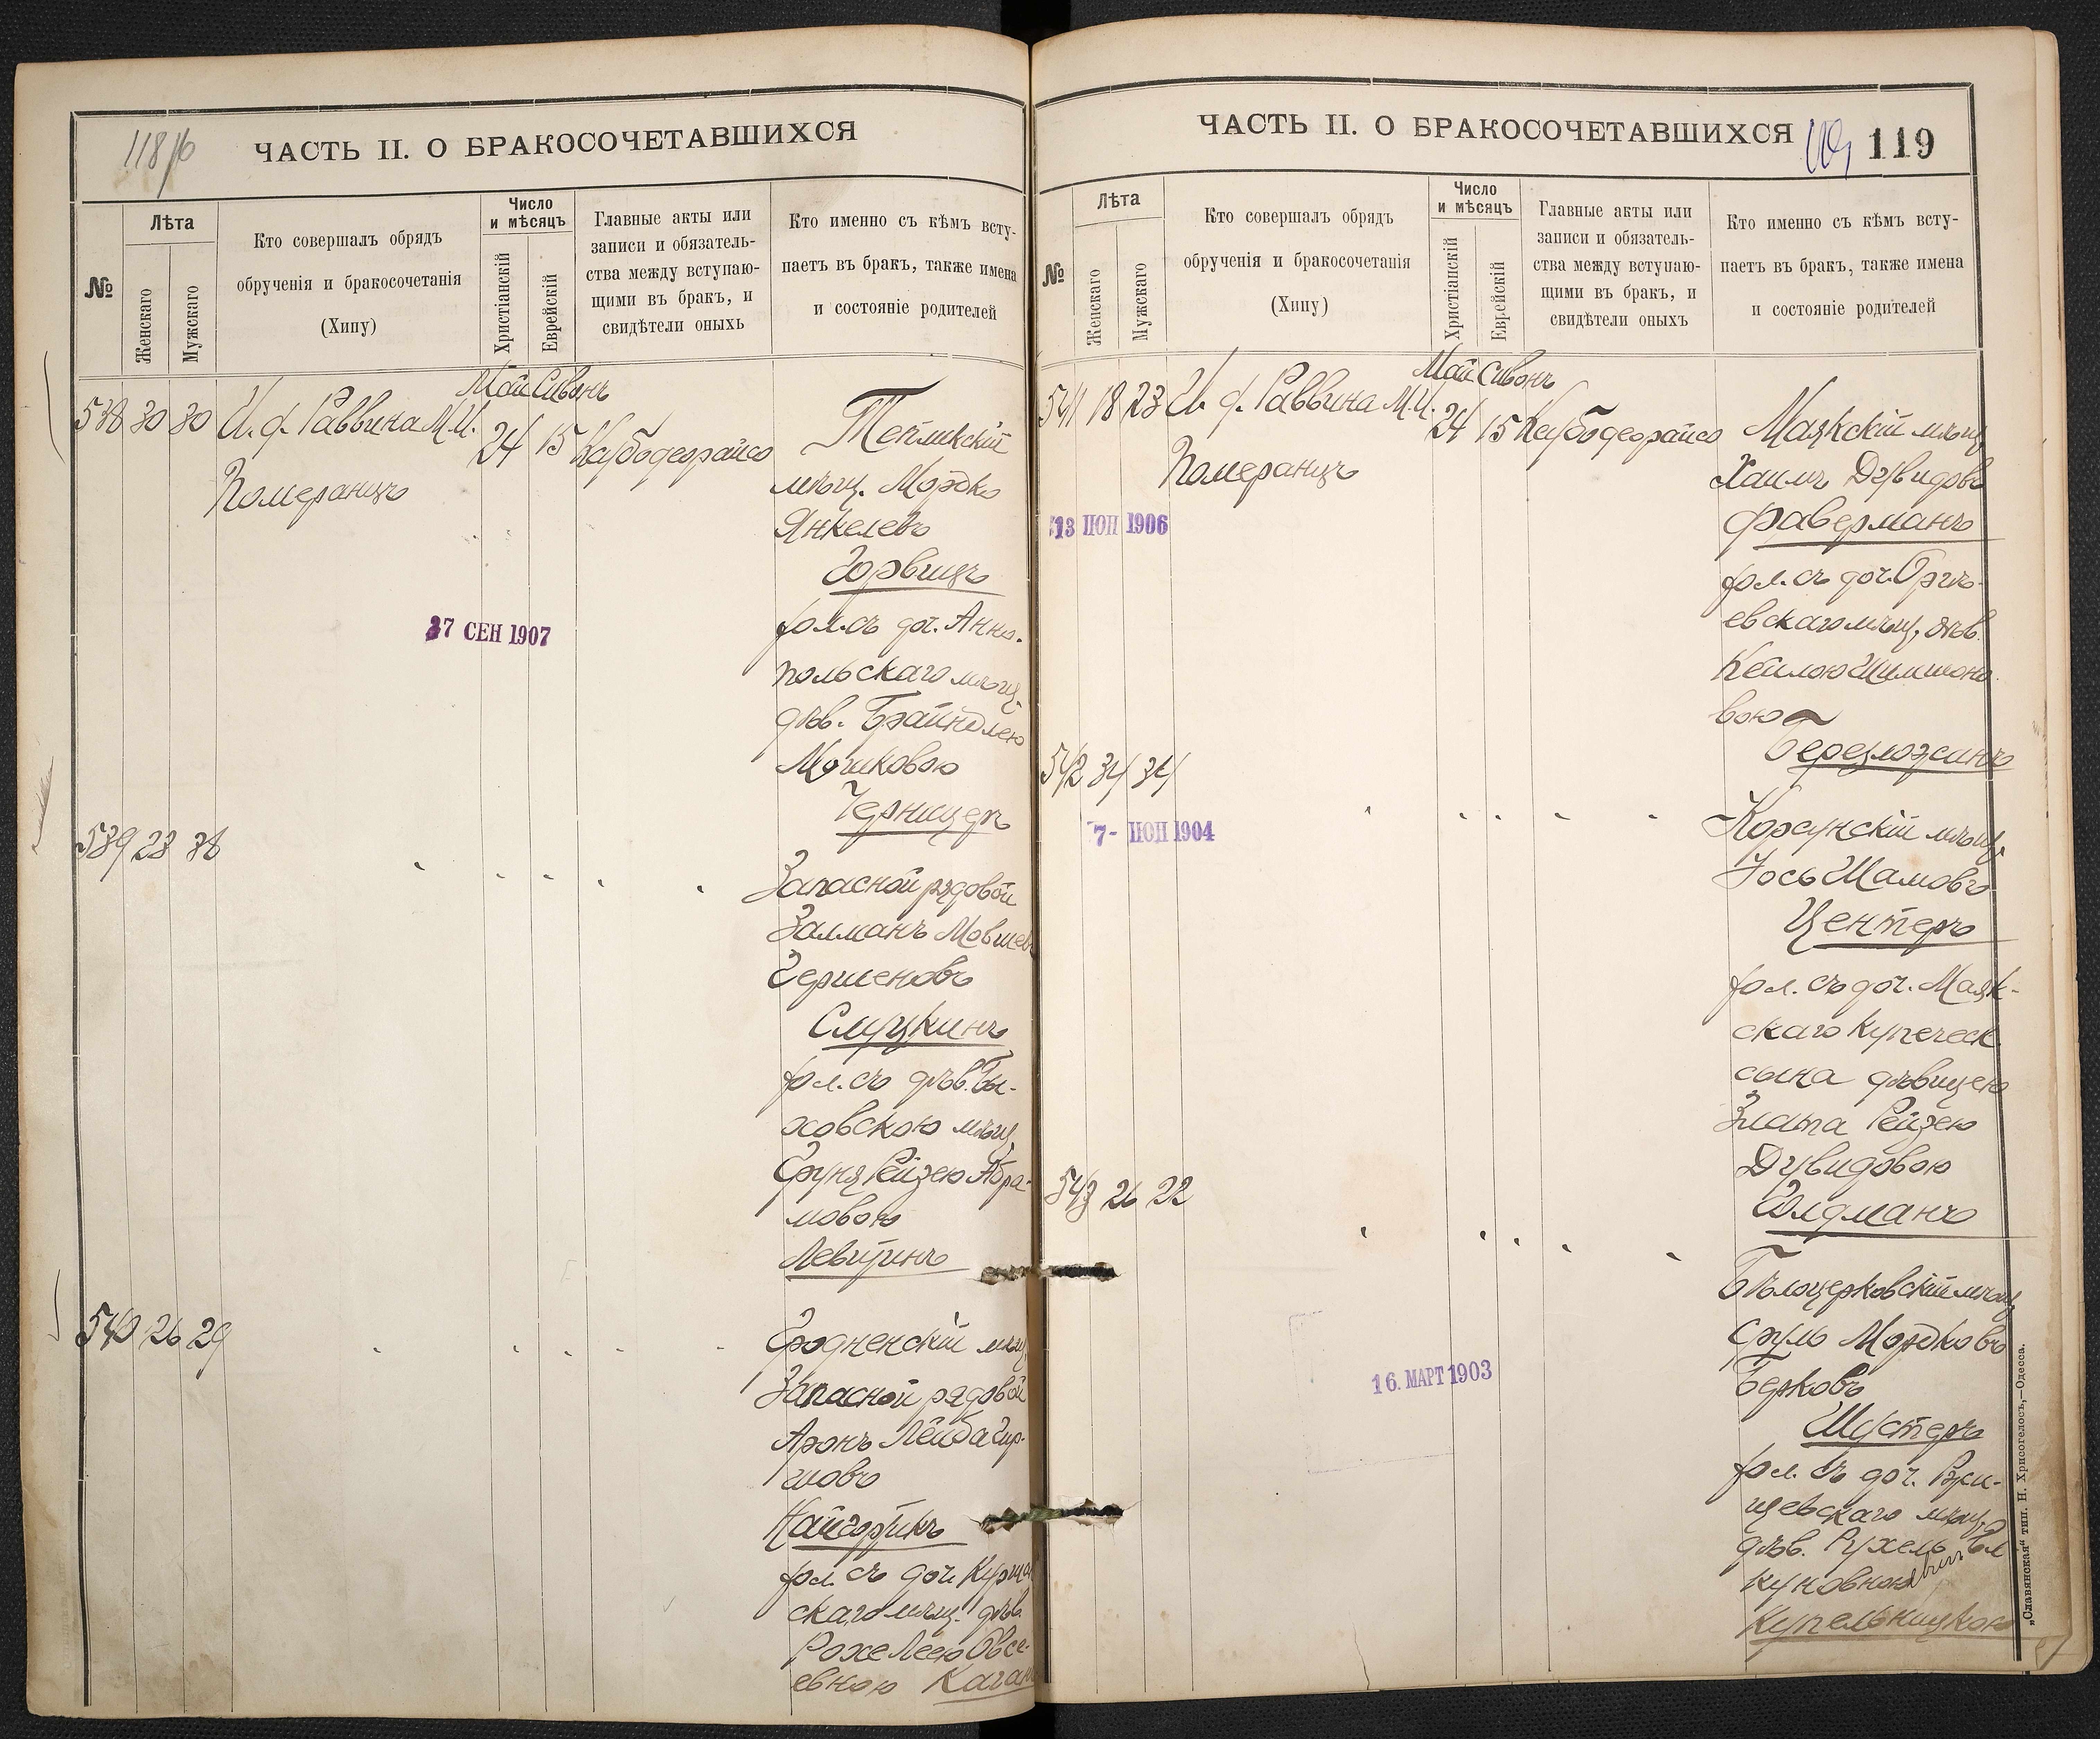 118 об
ЧАСТЬ II. О БРАКОСОЧЕТАВШИХСЯ
№
Лѣта
Женскаго
Мужскаго
Кто совершалъ обрядъ
обрученія и бракосочетанія
(Хипу)
Число
и мѣсяцъ
Христіанскій
Еврейскій
Главные акты или
записи и обязатель-
ства между вступаю-
щими въ бракъ, и
свидѣтели оныхъ
Кто именно съ кѣмъ всту-
паетъ въ бракъ, также имена
и состояніе родителей
Май Сивонъ
538 30 30 И. ф. Раввина М. И.
Померанцъ
24 15
Тепликскій
мѣщ. Мордко
Янкелевъ
Горвицъ
хол. съ доч. Анно-
польскаго мѣщ.
дѣв. Брайндлею
Мошковою
Черницеръ
27 СЕН 1907
539 23 38
Запасной рядовой
Залманъ Мовшевъ
Гершеновъ
Слуцкинъ
хол. съ дѣв. Бы-
ховскою мѣщ.
Фруня Рейзею Абра-
мовою
Левитинъ
540 26 29
Гродненскій мѣщ.
Запасной рядовой
Аронъ Лейба Гир-
шовъ
Найгорикъ
хол. съ доч.
скаго мѣщ. дѣв.
Рохе Леею Овсе-
евною Каганъ
ЧАСТЬ II. О БРАКОСОЧЕТАВШИХСЯ
119
№
Лѣта
Женскаго
Мужскаго
Кто совершалъ обрядъ
обрученія и бракосочетанія
(Хипу)
Число
и мѣсяцъ
Христіанскій
Еврейскій
Главные акты или
записи и обязатель-
ства между вступаю-
щими въ бракъ, и
свидѣтели оныхъ
Кто именно съ кѣмъ всту-
паетъ въ бракъ, также имена
и состояніе родителей
Май Сивонъ
541 18 23 И. ф. Раввина М. И.
Померанцъ
24 15
Маякскій мѣщ.
Хаимъ Дувидовъ
Фаверманъ
хол. съ доч. Оргѣ-
евскаго мѣщ. дѣв.
Кейлою Шимшоно-
вою
13 ІЮЛ 1906
542 34 34
Корсунскій мѣщ.
Іось Шамовъ
Центеръ
хол. съ доч. Маяк-
скаго купеческ.
сына дѣвицею
Злата Рейзею
Дувидовою
7- ІЮЛ 1904
543 26 22
Бѣлоцерковскій мѣщ.
Сруль Мордковъ
Берковъ
Шустеръ
хол. съ доч. Ржи-
щевскаго мѣщ.
дѣв. Рухель
Купельницкою
16. МАРТ 1903
„Славянская“ тип. Н. Хрисогелосъ,—Одесса.